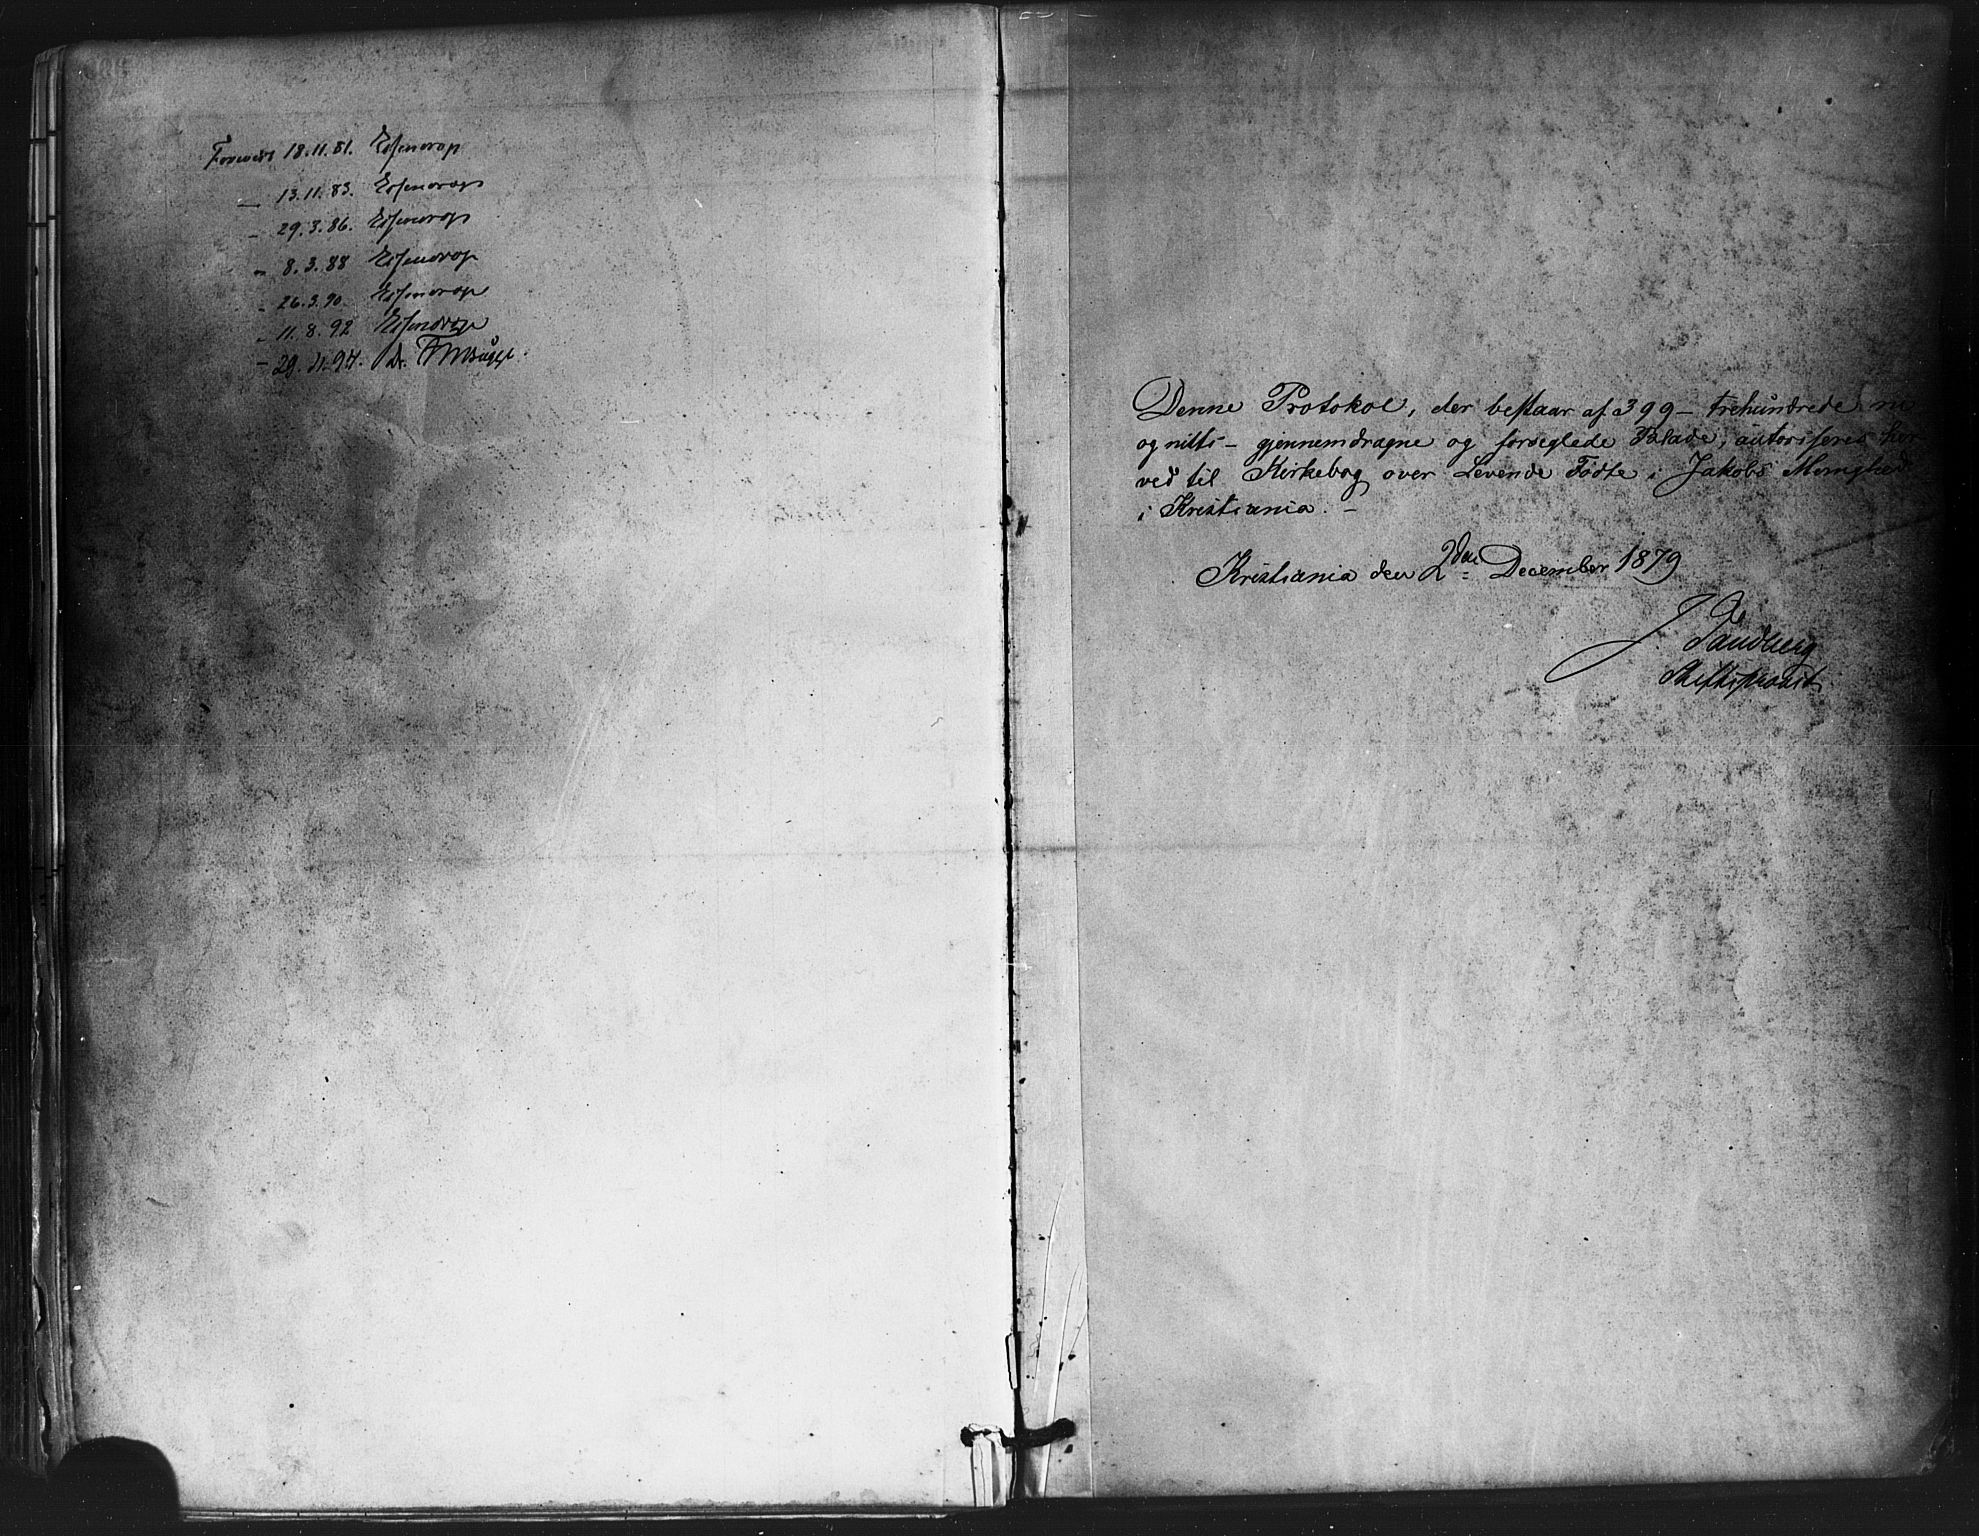 Forevist 18.11.81. Essendrop
— 13.11.83. Essendrop
— 29.3.86. Essendrop
— 8.3.88 Essendrop
— 26.3.90 Essendrop
— 11.8.92 Essendrop
— 29.11.94. Dr. FWBugge.
Denne Protokol, der bestaar af 399 – trehundrede ni
og nitti – gjennemdragne og forseglede Blade, autoriseres her
ved til Kirkebog over Levende Fødte i Jakobs Menighed
i Kristiania. –
Kristiania den 2den December 1879
J. Sandberg
Stiftsprovst